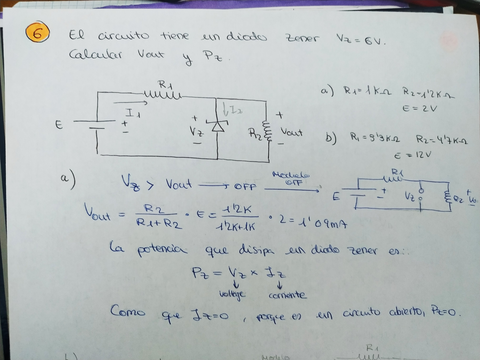 6 El circuito tiene un diodo zener Vz = 6V.
Calcular Vout y Pz.
R1
I1
E
+
-
+
Vz
-
Iz
R2
+
Vout
-
a) R1 = 1KΩ R2 = 1'2KΩ
E = 2V
b) R1 = 3'3KΩ R2 = 4'7KΩ
E = 12V
a) Vz > Vout → OFF Modelo OFF →
R1
E
+
-
Vz
R2
Vout = R2 / R1+R2 · E = 1'2K / 1'2K+1K · 2 = 1'09mA
La potencia que disipa un diodo zener es:
Pz = Vz x Iz
voltaje corriente
Como que Iz=0, porque es un circuito abierto, Pz=0.
R1